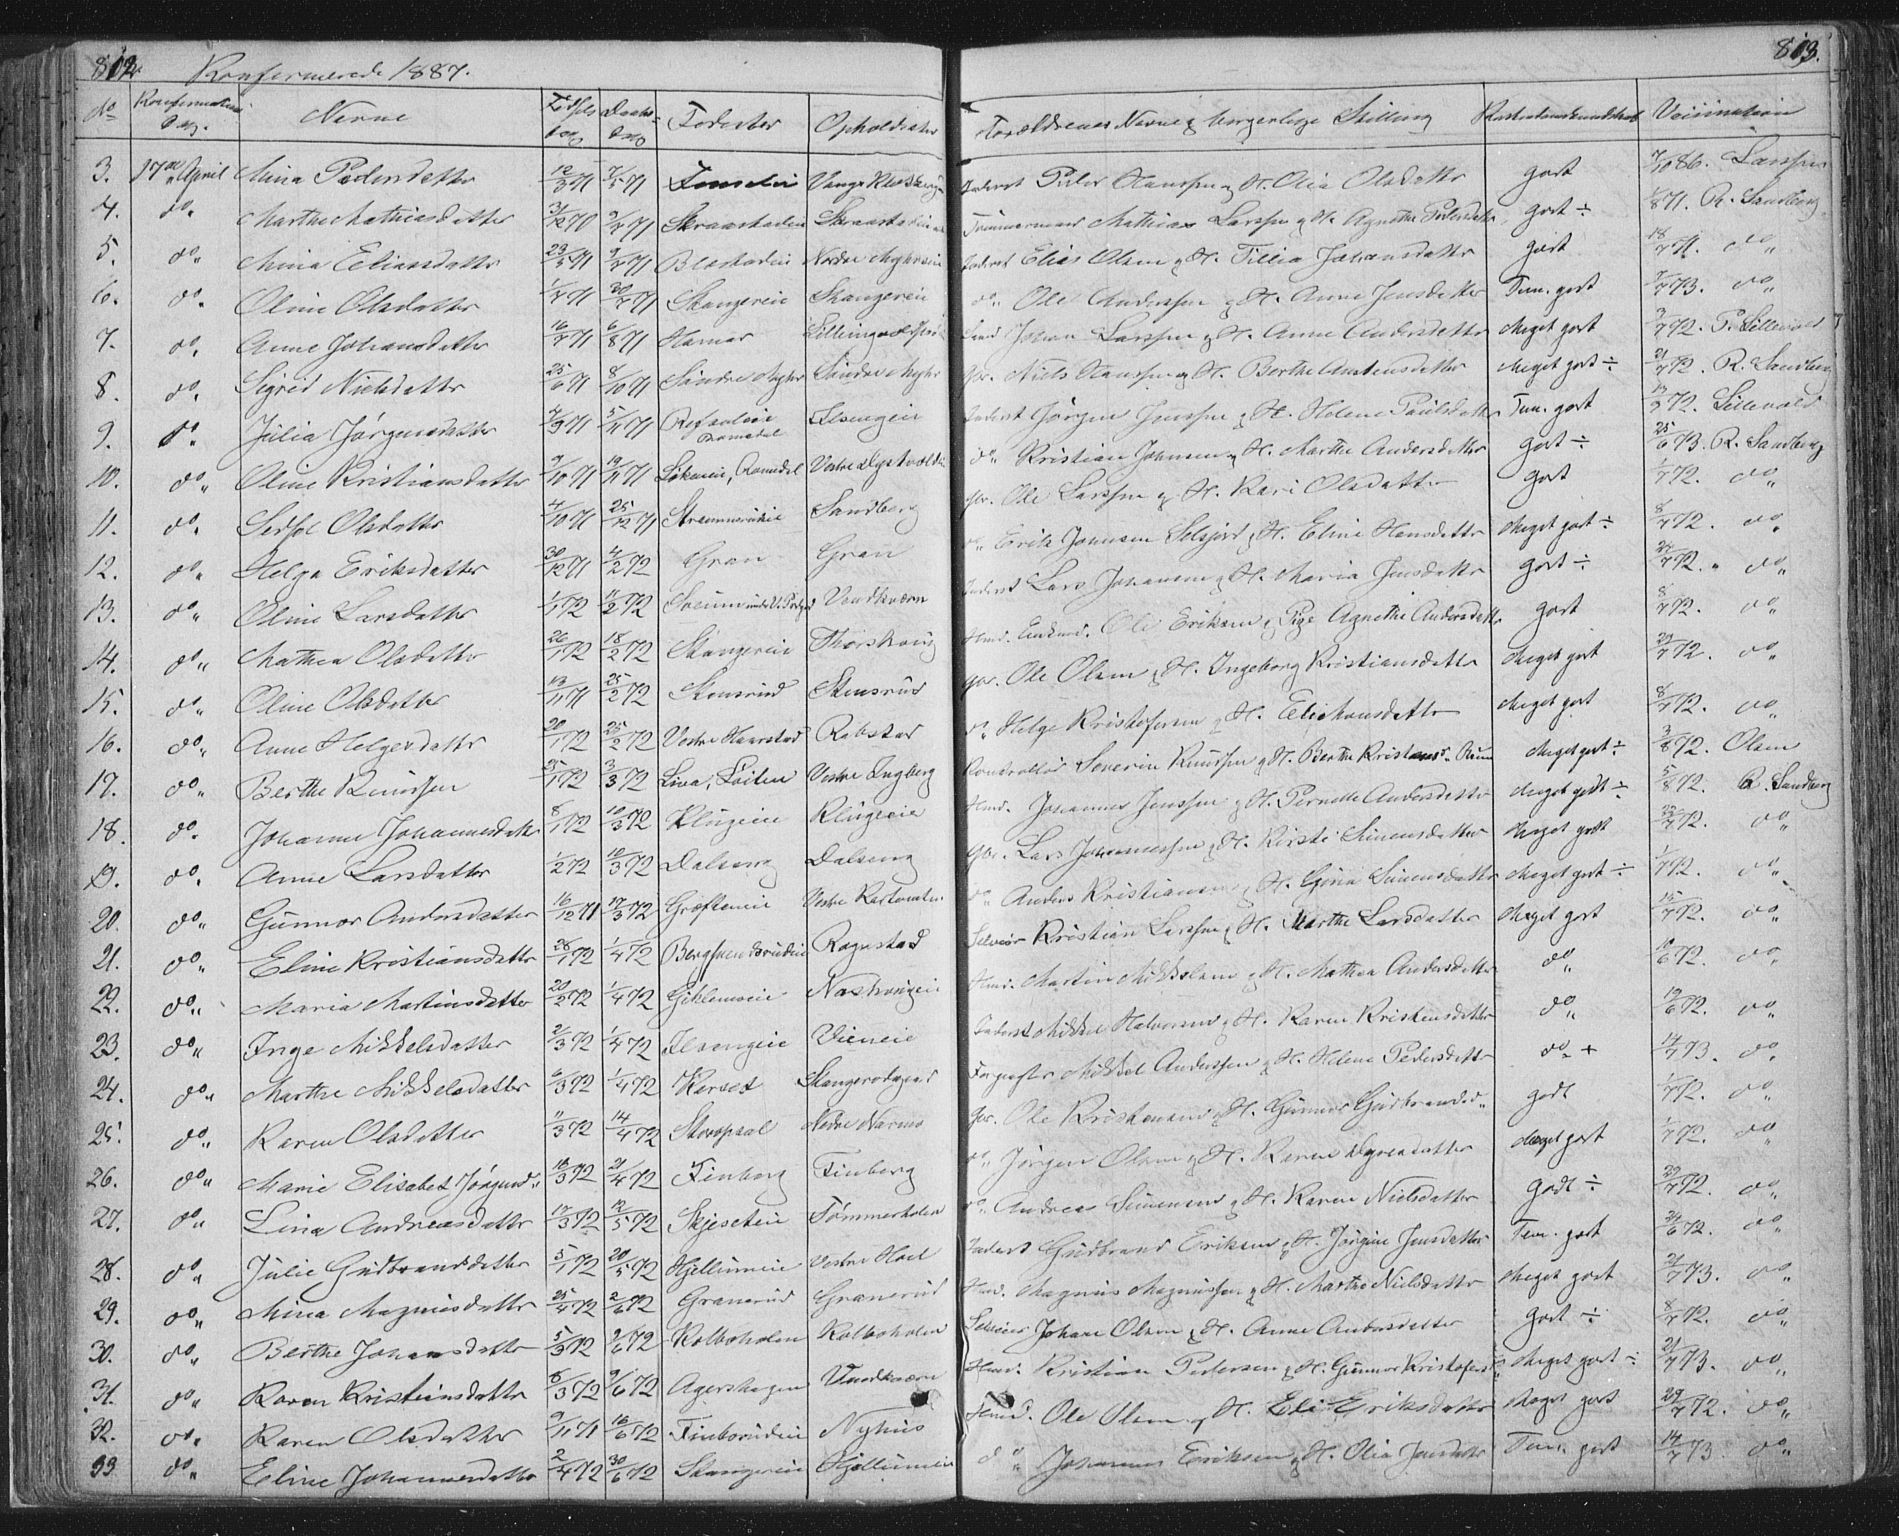 812. Konfirmerede 1887. 813.
No Konfirmations Dag. Navne Fødsels Dag Daabs Dag Fødested Opholdssted Forældrenes Navne og borgerlige Stilling Kristendomskundskab Vaccination
3. 17de April Mina Pedersdatter 12/3 71 7/5 71 Inderst Peder Hanssen og H. Olia Olsdatter godt 7/10 86. Larssen
4. do. Marthe Mathiasdatter 31/12 70 9/7 71 Skraastadeie Tømmermand Mathias Larssen og H. Agnethe Pedersdatter godt ÷ 1/8 71. R. Sandberg
5. do. Mina Eliasdatter 23/5 71 9/7 71 Nordre Myhreeie Inderst Elias Olsen og H. Tillia Johansdatter godt 18/7 71. do
6. do. Oline Olsdatter 1/7 71 30/7 71 Skangereie Skangereie do Ole Anderssen og H. Anne Jensdatter Tem. godt 2/7 73. do
7. do. Anne Johansdatter 16/7 71 6/8 71 Hamar Johan Larssen og H. Anne Andersdatter Meget godt 3/7 72. P. Lillevold
8. do. Sigrid Nielsdatter 25/6 71 8/10 71 Søndre Myhr Søndre Myhr Gbr. Niels Hanssen og H. Berthe Austensdatter Meget godt ÷ 21/7 72. R. Sandberg
9. do. Julia Jørgensdatter 4/9 71 5/11 71 Romedal Ilsengeie Inderst Jørgen Jenssen og H. Helene Paulsdatter Tem. godt 13/9 72. Lillevold
10. do. Oline Kristiansdatter 9/10 71 19/11 71 Løkeneie, Romedal do Kristian Johnsen og H. Marthe Andersdatter godt ÷ 25/6 73. R. Sandberg
11. do. Olsdatter 4/10 71 25/12 71 Sandberg Gbr. Ole Larssen og H. Kari Olsdatter godt 1/7 72. do
12. do. Helga Eriksdatter 30/12 71 4/2 72 Gran Gran do Erik Johnsen Selsjord og H. Eline Hansdatter Meget godt ÷ 8/7 72. do
13. do. Oline Larsdatter 1/1 72 11/2 72 Vendkværn Inderst Lars Johansen og H. Maria Jensdatter godt ÷ 24/7 72. do
14. do. Mathea Olsdatter 26/1 72 18/2 72 Skangereie Thorshoug Hmd. Enkmd. Ole Eriksen og Pige Agnethe Andersdatter godt 8/7 72. do
15. do. Oline Olsdatter 13/11 71 25/2 72 Stensrud Stensrud Gbr. Ole Olsen og H. Ingeborg Kristiansdatter Meget godt 29/7 72. do
16. do. Anne Helgesdatter 20/1 72 25/2 72 Vestre Haarstad Robstad do Helge Kristofersen og H. Meget godt 8/7 72. do
17. do. Berthe Knudsen 25/1 72 3/3 72 Lina, Løiten Vestre Ingberg Kontrollør Severin Knudsen og H. Berthe Meget godt ÷ 3/8 72. Olsen
18. do. Johanne Johannesdatter 8/1 72 10/3 72 Klugeie Klugeie Hmd. Johannes Jenssen og H. Pernelle Andersdatter Meget godt ÷ 5/8 72. R. Sandberg
19. do. Anne Larsdatter 1/2 72 10/3 72 Dalseng Dalseng Gbr. Lars Johannessen og H. Kirsti Simensdatter Meget godt 22/7 72. do
20. do. Gunnor Andersdatter 16/12 71 17/3 72 do Anders Kristiansen og H. Gina Simensdatter Meget godt ÷ 1/7 72. do
21. do. Eline Kristiansdatter 28/1 72 1/4 72 Rogstad Selveier Kristian Larssen og H. Marthe Larsdatter Meget godt 15/7 72. do
22. do. Maria Martinsdatter 20/2 72 1/4 72 Hmd. Martin Mikkelsen og H. Mathea Andersdatter do 10/6 72. do
23. do. Inge Mikkelsdatter 2/3 72 1/4 72 Ilsengeie Vieneie Inderst Mikkel Halvorsen og H. Karen Kristensdatter do 19/6 72. do
24. do. Marthe Mikkelsdatter 6/3 72 1/4 72 Kerset Forpagter Mikkel Anderssen og H. Helene Pedersdatter do + 14/7 73. do
25. do. Karen Olsdatter 11/3 72 14/4 72 Gbr. Ole Kristensen og H. Gunnor Gudbrandsd. godt 1/7 72. do
26. do. Marie Elisabet Jørgensd. 18/3 72 21/4 72 Finborg Finberg do Jørgen Olsen og H. Karen Dyresdatter Meget godt 1/7 72. do
27. do. Lina Andreasdatter 17/3 72 12/5 72 Skjeseteie Tømmerholen do Andreas Simensen og H. Karen Nielsdatter Godt ÷ 29/7 72. do
28. do. Julie Gudbrandsdatter 5/1 72 20/5 72 Hjellumeie Vestre Hoel Inderst Gudbrand Eriksen og H. Jørgine Jensdatter Tem. godt 24/6 72. do
29. do. Mina Magnusdatter 25/4 72 2/6 72 Granerud Granerud Hmd. Magnus Magnussen og H. Marthe Nielsdatter Meget godt 2/7 73. do
30. do. Berthe Johansdatter 5/3 72 2/6 72 Kolboholen Kolboholen Selveier Johan Olsen og H. Anne Andersdatter Godt ÷ 8/7 72. do
31. do. Karen Kristiansdatter 6/3 72 9/6 72 Agershagen Vendkværn Hmd. Kristian Pedersen og H. Gunnor Kristofersd. Meget godt ÷ 21/7 73. do
32. do. Karen Olsdatter 9/11 71 16/6 72 Finborudeie Nyhus Hmd. Ole Olsen og H. Eli Eriksdatter Meget godt 29/7 72. do
33 do. Eline Johannesdatter 2/4 72 30/6 72 Skangereie Hjellumeie do Johannes Eriksen og H. Olia Jensdatter Tem. godt 14/7 73. do